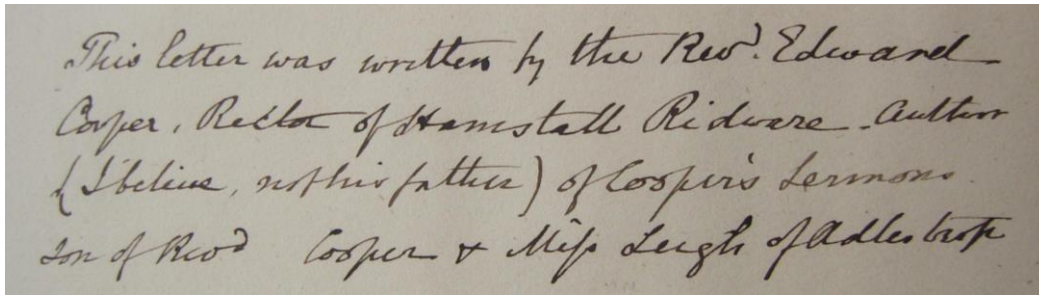 This letter was written by the Revd. Edward
Cooper, Rector of Hamstall Ridware. Author
(I believe, not his father) of Cooper's Sermons.
Son of Revd Cooper & Miss Leigh of Adlestrop